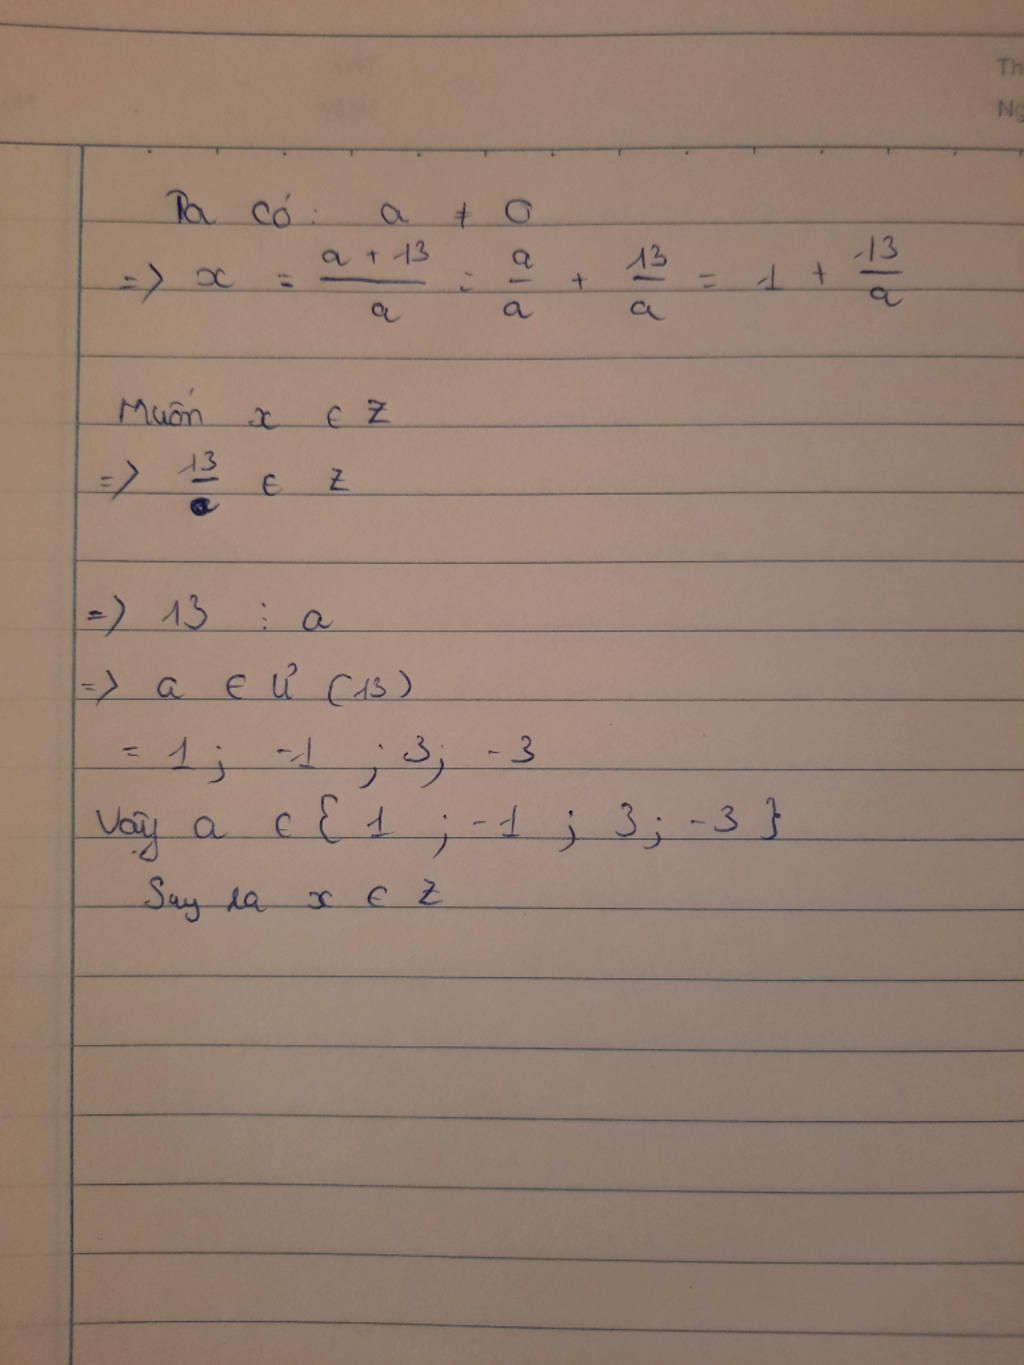 Th
Ng
Ta có: a ≠ 0
=> x = \frac{a + 13}{a} = \frac{a}{a} + \frac{13}{a} = 1 + \frac{13}{a}
Muốn x ∈ Z
=> \frac{13}{a} ∈ Z
=> 13 ⋮ a
=> a ∈ Ư (13)
= 1 ; -1 ; 3 ; -3
Vậy a ∈ { 1 ; -1 ; 3 ; -3 }
Suy ra x ∈ Z